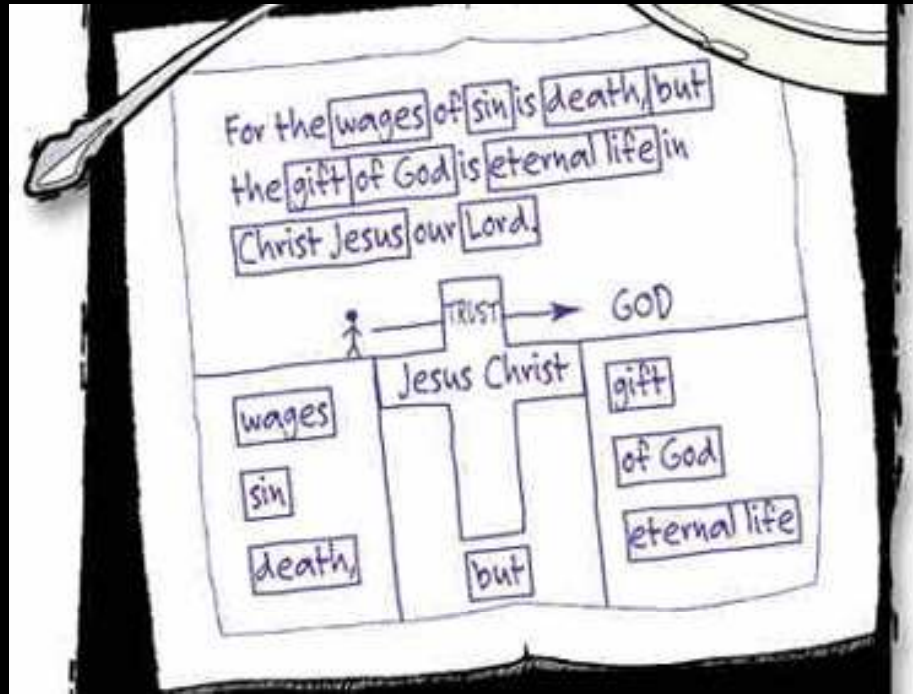 For the wages of sin is death, but
the gift of God is eternal life in
Christ Jesus our Lord.
TRUST
GOD
Jesus Christ
wages
sin
death,
but
gift
of God
eternal life